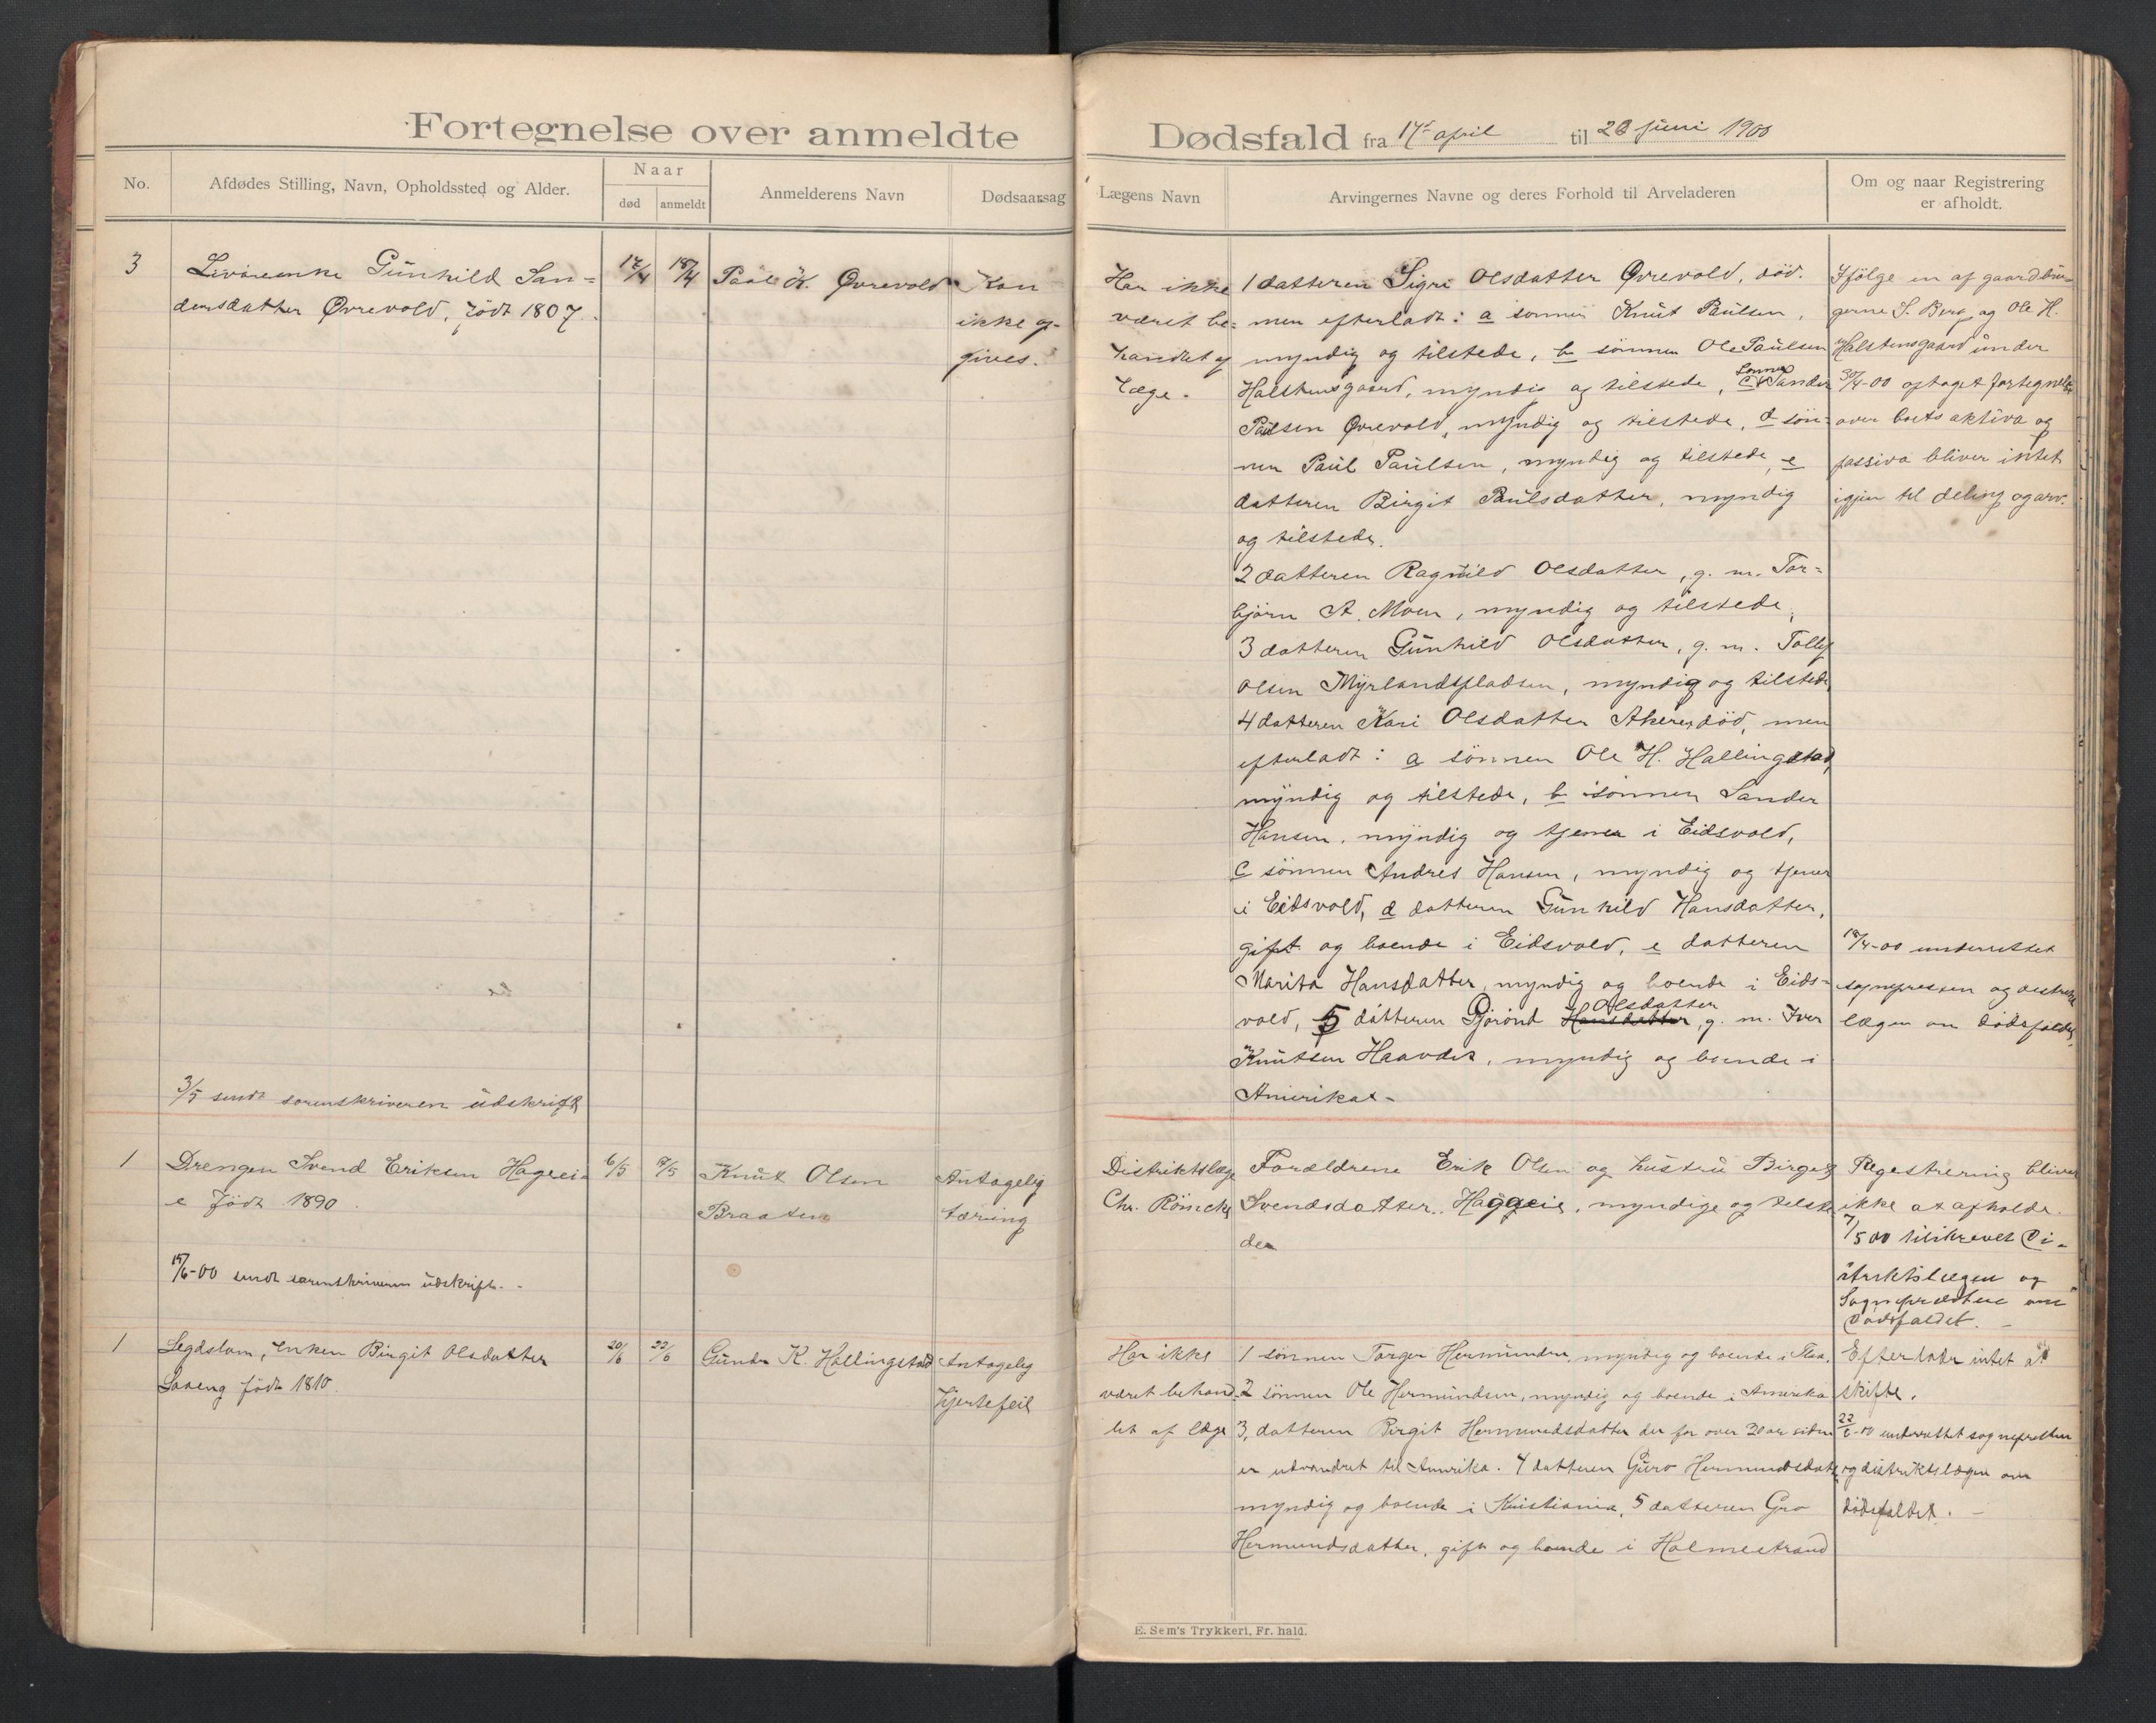 Fortegnelse over anmeldte Dødsfald fra 17de april til 26 juni 1900
No.
Afdødes Stilling, Navn, Opholdssted og Alder.
Naar
død
anmeldt
Anmelderens Navn
Dødsaarsag
Lægens Navn
Arvingernes Navne og deres Forhold til Arveladeren
Om og naar Registrering
er afholdt.
3
Livøreenke Gunhild San=
densdatter Øvrevold, født 1807.
17/4
18/4
Paal K. Øvrevold
Kan
ikke op-
gives.
Har ikke
været be=
handlet af
læge.
1 datteren Sigri Olsdatter Øvrevold, død.
men efterladt: a sønnen Knut Paulsen,
myndig og tilstede, b sønnen Ole Paulsen
Halstensgaard, myndig og tilstede, c sønnen Sander
Paulsen Øvrevold, myndig og tilstede, d søn=
nen Paul Paulsen, myndig og tilstede, e
datteren Birgit Paulsdatter, myndig
og tilstede.
2 datteren Ragnild Olsdatter, g. m. Tor=
bjørn A. Moen, myndig og tilstede,
3 datteren Gunhild Olsdatter, g. m. Tollef
Olsen Myrlandspladsen, myndig og tilstede,
4 datteren Kari Olsdatter Akeren, død, men
efterladt: a sønnen Ole H. Hallingstad,
myndig og tilstede, b sønnen Sander
Hansen, myndig og tjener i Eidsvold,
c sønnen Andres Hansen, myndig og tjener
i Eidsvold, d datteren Gunhild Hansdatter,
gift og boende i Eidsvold, e datteren
Marita Hansdatter, myndig og boende i Eids=
vold, 5 datteren Gjørønd Hansdatter Olsdatter, g. m. Iver
Knutsen Haavder, myndig og boende i
Amerika.-
Ifølge en af gaardbru=
gerne S. Berg og Ole H.
Halstensgaard under
30/4-00 optaget fortegnelse
over boets aktiva og
passiva bliver intet
igjen til deling og arv.
18/4-00 underrettet
sognepresten og distrikts
lægen om dødsfaldet.
3/5 sendt sorenskriveren udskrift
1
Drengen Svend Eriksen Hagei=
e født 1890
6/5
7/5
Knut Olsen
Braaten
Antagelig
tæring
Distriktslæge
Chr. Rönecke
Forældrene Erik Olsen og hustru Birgit
Svendsdatter Haggeie, myndige og tilste
de
Regestrering bliver
ikke at afholde.
7/5 00 tilskrevet Di-
striktslægen og
Sognepræsten om
Dødsfaldet. -
15/6-00 sendt sorenskriveren udskrift. -
1
Legdslam, enken Birgit Olsdatter
Saaeng født 1810.
20/6
22/6
Gunder K. Hallingstad
Antagelig
hjertefeil
Har ikke
været behand=
let af læge
1 sønnen Torger Hermunden, myndig og boende i Flaa,
2 sønnen Ole Hermundsen, myndig og boende i Amerika
3, datteren Birgit Hermundsdatter der for over 20 aar siden
er udvandret til Amerika. 4 datteren Guro Hermundsdatter
myndig og boende i Kristiania, 5 datteren Gro
Hermundsdatter, gift og boende i Holmestrand
Efterlader intet at
skifte.
22/6-00 underrettet sognepresten
og distriktslægen om
dødsfaldet. -
E. Sem's Trykkeri, Fr. hald.